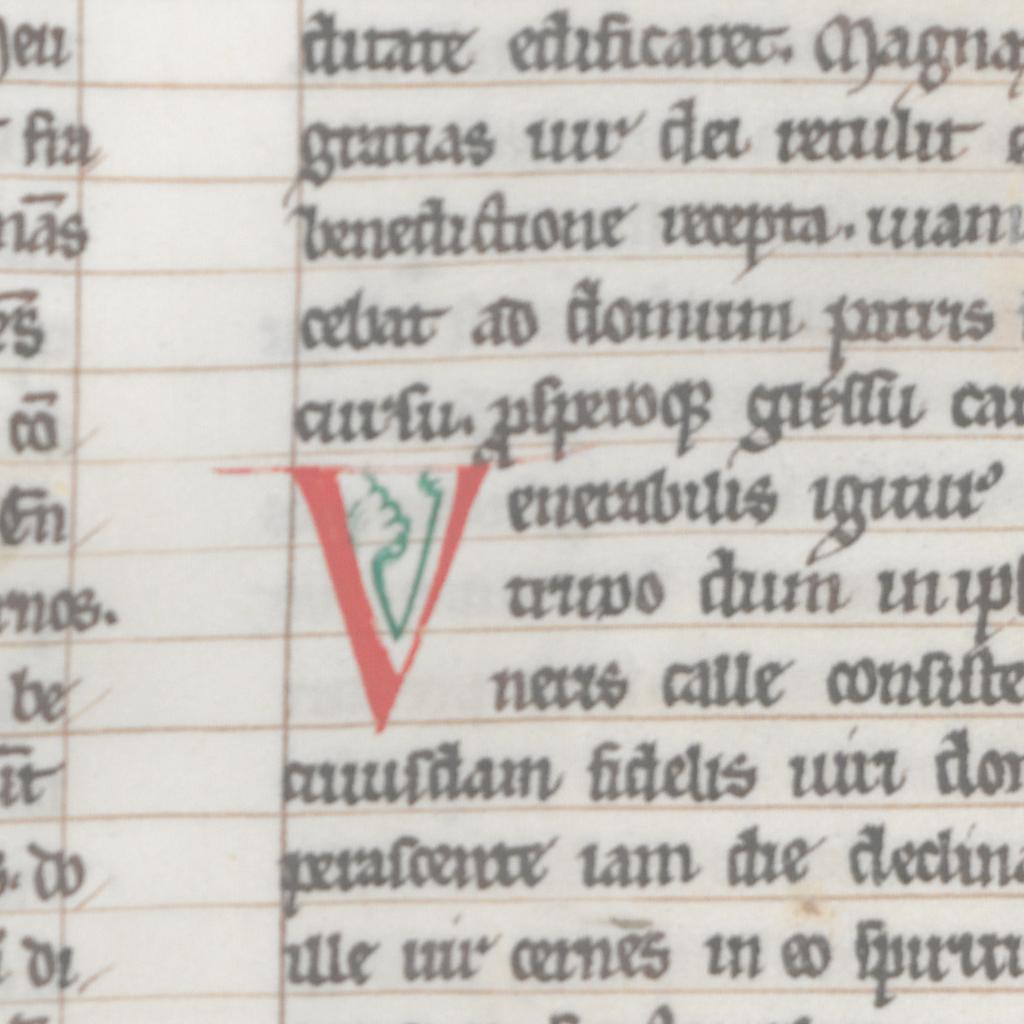 eu
fia
nās
ēs
cō
En
rnos.
be
īt
do
di
ditate edificaret. Magna
gratias uir dei retulit
benedictione recepta. uiam
cebat ad domum patris
cursu. ꝓsperoqꝫ gressu
Venerabilis igitur
trudo dum in ip
neris calle consiste
cuiusdam fidelis uiri dom
perascente iam die declina
ille uir cernēs in eo spiritu